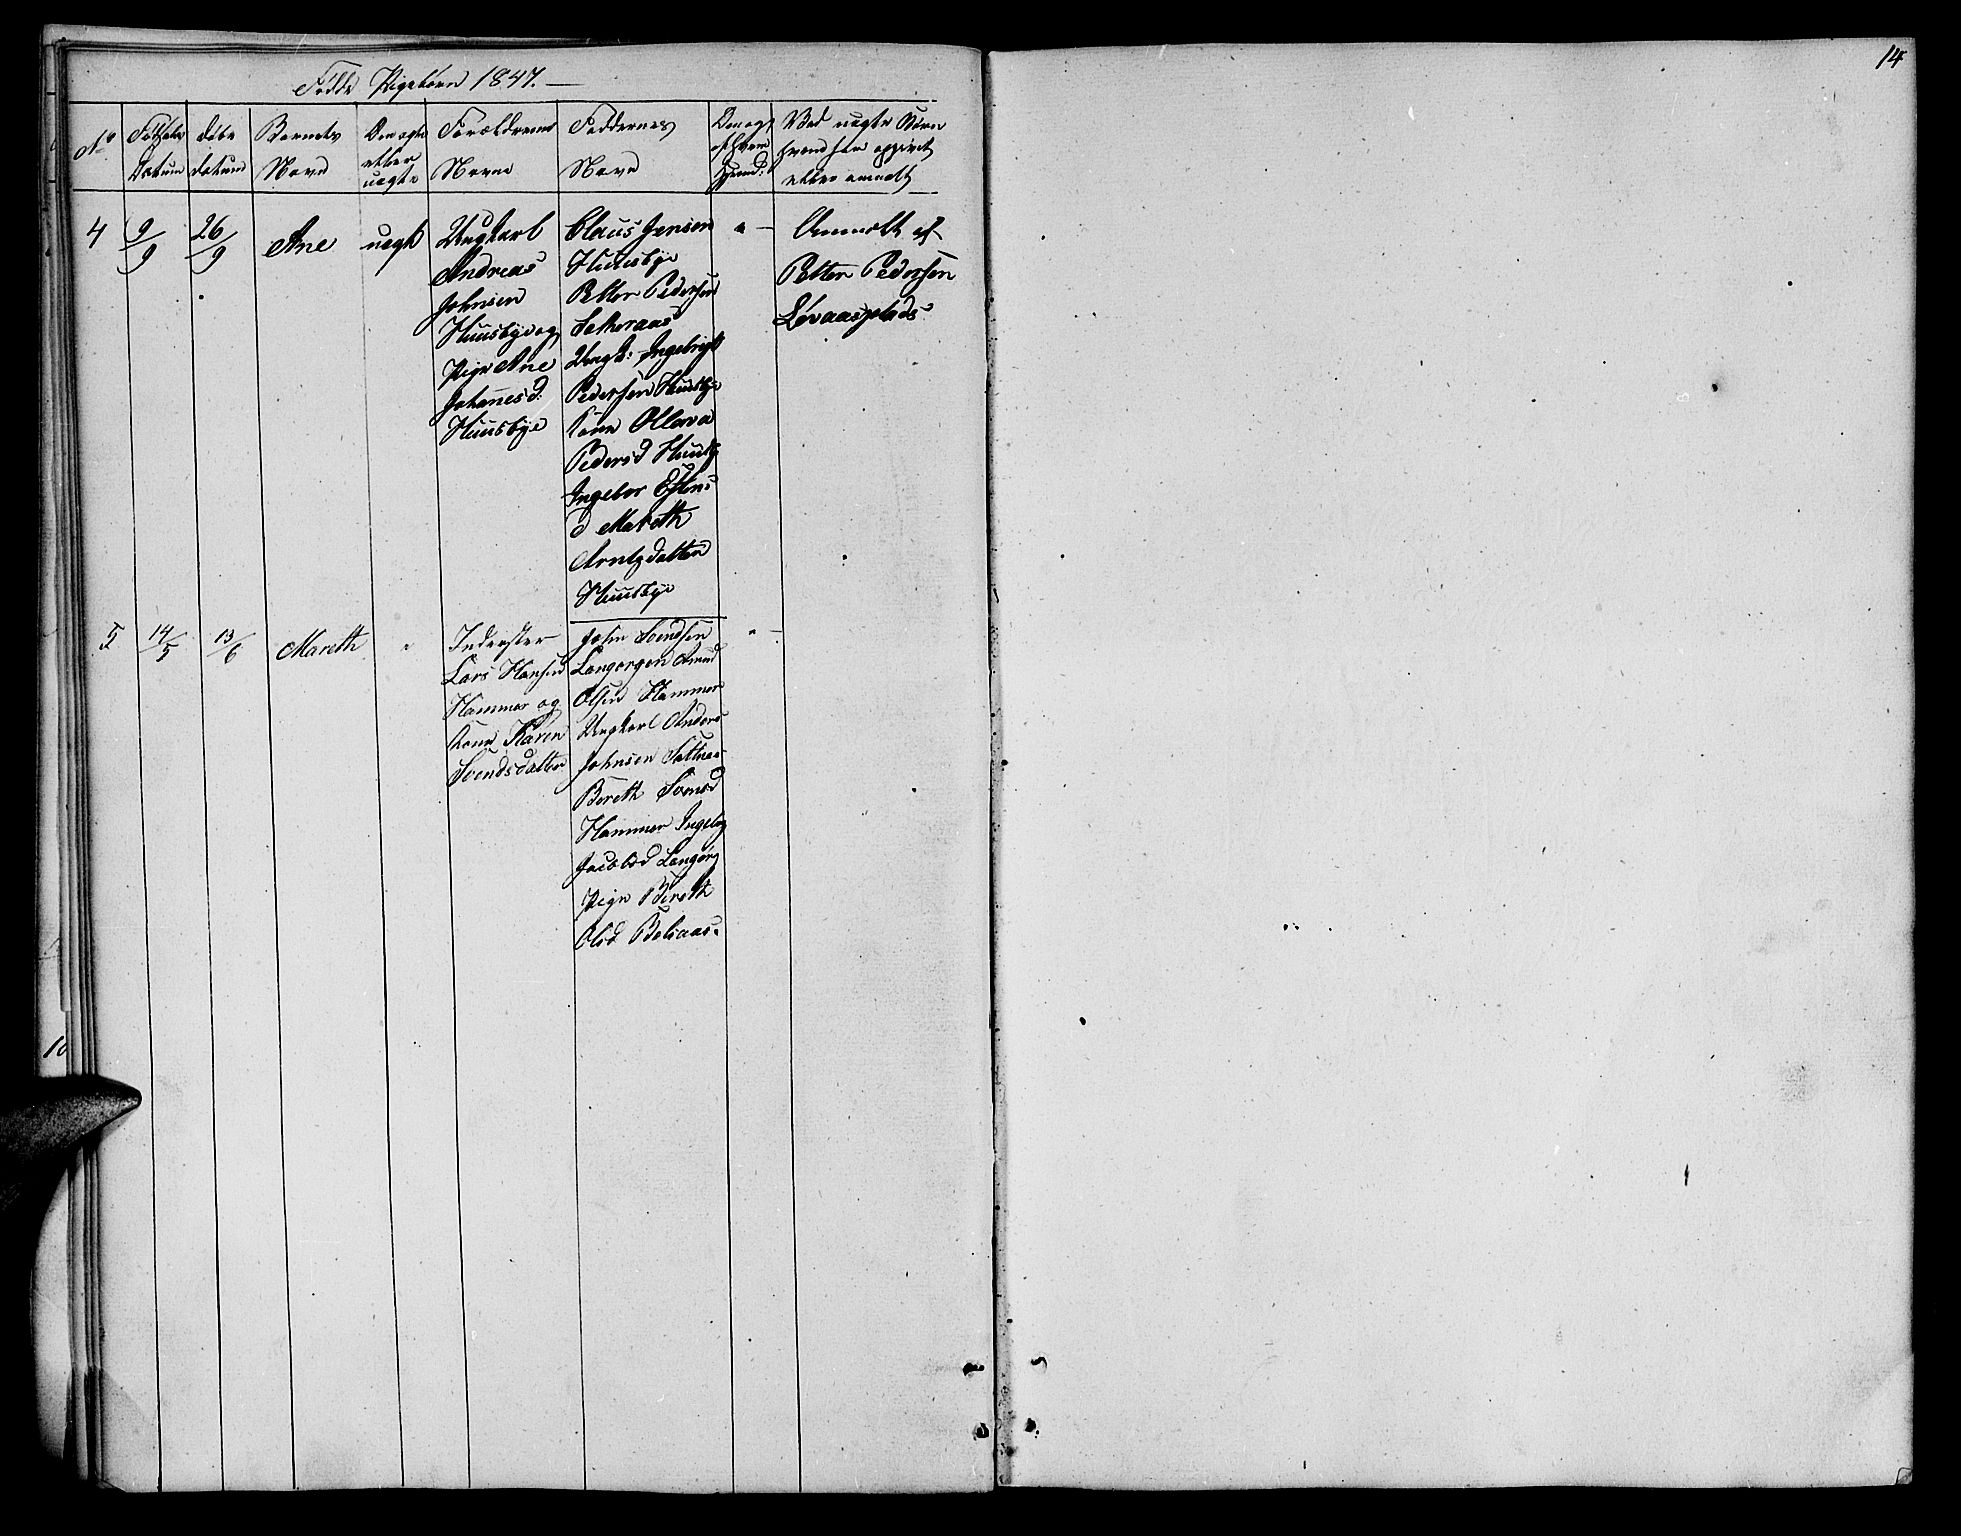 14
Fødte Pigebørn 1847. —
No
Fødsels Datum
Døbe datum
Barnets Navn
Om ægte eller uægte
Forældrenes Navne
Faddernes Navn
Ved uægte Børn
hvem som opgivet
eller anmelt
4
9/9
26/9
Ane
uægte
Ungkarl
Andreas
Johnsen
Huusbye og
Pige Ane
Johanesd:
Huusbye
Claus Jensen
Huusbye
Petter Pedersen
Sætheraas
Ungk: Ingebrigt
Pedersen Huusbye
Kone Ollava
Pedersd Huusby
Ingebor Estens
d Mareth
Arntzdatter
Huusbye
" —
Anmelt af
Petter Pedersen
Løvaasplads
5
14/5
13/6
Mareth
"
Inderster
Lars Hansen
Hammer og
Kone Karen
Svendsdatter
John Svendsen
Langørgen Amund
Olsen Hammer
Ungkarl Anders
Johnsen
Bereth Svensd
Hammer Ingeborg
Jacobsd Langørg
Pige Bereth
Olsd Belsaas.
" —
10